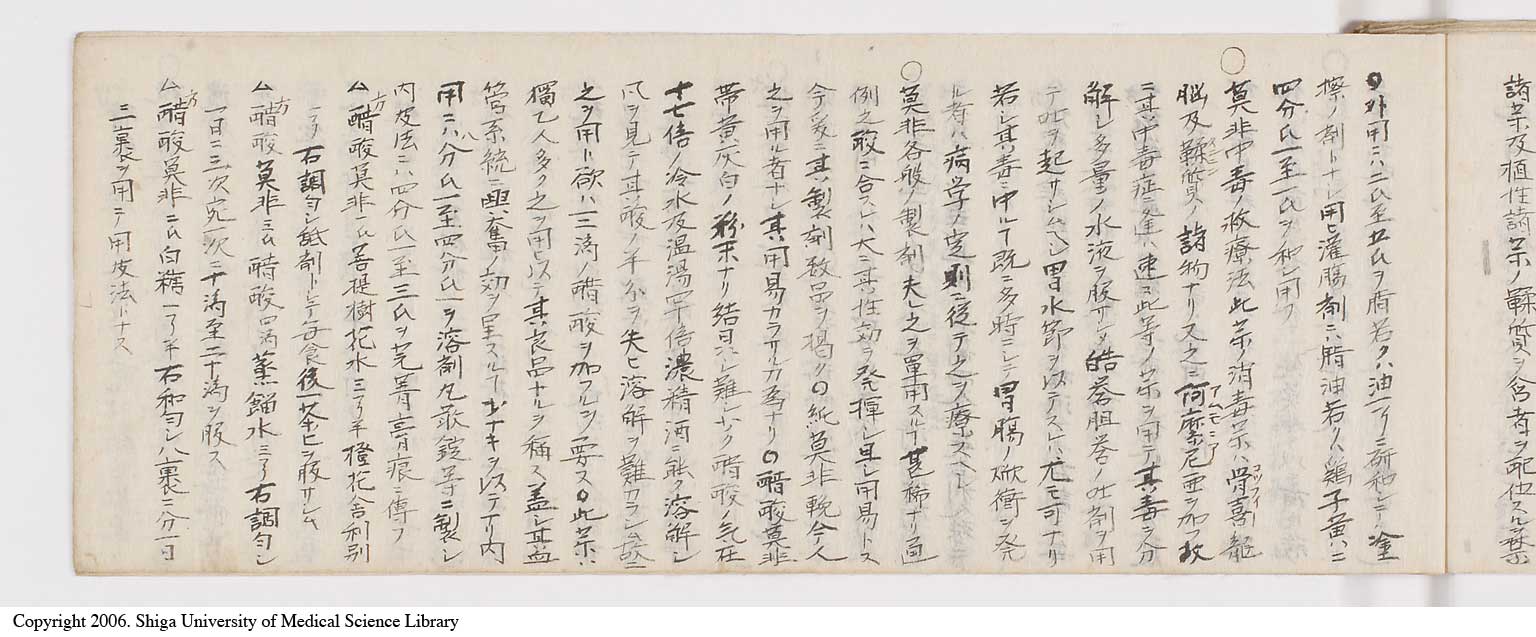 諸薬及植性諸薬ノ鞣質ヲ含者ヲ配伍スルヲ禁
○外用ニハ二氏至五氏ヲ脂若クハ油一了ニ研和シテ塗
擦ノ剤トナシ用ヒ灌腸剤ニハ脂油若クハ鶏子黄ハニ
四分氏一至一氏ヲ和シ用フ
○莫非中毒ノ救療法此薬ノ消毒薬ハ骨喜龍
脳及鞣質ノ諸物ナリス之ニ何摩尼亜ヲ加フ故
ニ其中毒症ニ逢ハ速ニ此等ノ薬ヲ用テ其毒ヲ分
解シ多量ノ水液ヲ服サシメ皓礬胆礬ノ吐剤ヲ用
テ吐ヲ起サシムヘシ胃水節ヲ以テスレハ尤モ可ナリ
若シ其毒ニ中ルヿ既ニ多時ニシテ胃腸ノ焮衝ヲ発
ル者ハ病学ノ定則ニ従テ之ヲ療スヘシ
○莫非各般ノ製剤夫レ之ヲ単用スルヿ甚稀ナリ通
例之酸ニ合スレハ大ニ其性効ヲ発揮シ且シ用易トス
今爰ニ其製剤数品ヲ掲ク○純莫非輓今人
之ヲ用ル者ナシ其用易カラサルカ為ナリ○醋酸莫非
帯黄灰白ノ粉末ナリ結晶シ難シ少ク醋酸ノ気在
十七倍ノ冷水及温湯四十倍濃精酒ニ能ク溶解シ
之ヲ用ト欲ハ一二滴ノ醋酸ヲ加フルヲ要ス○此薬ハ
獨乙人多ク之ヲ用ヒ以テ其良品ナルヲ称ス蓋シ其血
管系統ニ興奮ノ効ヲ呈スルヿ少ナキヲ以テナリ内
用ニハ八分氏一至四分氏一ヲ溶剤丸散錠等ニ製シ
内皮法ニハ四分氏一至三氏ヲ芫菁膏痕ニ傅フ
△方醋酸莫非一氏菩提樹花水三了半橙花舎利別
一了右調匀シ舐剤トシテ毎食後一茶匕ヲ服サシム
△方醋酸莫非三氏醋酸四滴蒸餾水三了右調匀シ
一日ニ三次宛一次ニ十滴至二十滴ヲ服ス
△方醋酸莫非二氏白糖一了半右和匀シ八裹ニ分一日
二裹ヲ用ニテ用皮法トナス
Copyright 2006. Shiga University of Medical Science Library